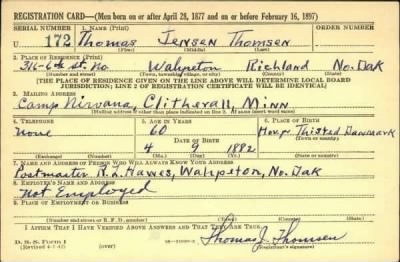 REGISTRATION CARD—(Men born on or after April 28, 1877 and on or before February 16, 1897)
SERIAL NUMBER 1. NAME (Print) ORDER NUMBER
U 172 Thomas Jensen Thomsen
(First) (Middle) (Last)
2. PLACE OF RESIDENCE (Print)
316-6th St. No. Wahpeton Richland No. Dak
(Number and street) (Town, township, village, or city) (County) (State)
[THE PLACE OF RESIDENCE GIVEN ON THE LINE ABOVE WILL DETERMINE LOCAL BOARD
JURISDICTION; LINE 2 OF REGISTRATION CERTIFICATE WILL BE IDENTICAL]
3. MAILING ADDRESS
Camp Nirvana, Clitherall, Minn
(Mailing address if other than place indicated on line 2. If same insert word same)
4. TELEPHONE 5. AGE IN YEARS 6. PLACE OF BIRTH
None 60
DATE OF BIRTH Thisted Danmark
4 9 1882
(Exchange) (Number) (Mo.) (Day) (Yr.) (Town or county) (State or country)
7. NAME AND ADDRESS OF PERSON WHO WILL ALWAYS KNOW YOUR ADDRESS
Postmaster R. L. Hawes, Wahpeton, No. Dak
8. EMPLOYER'S NAME AND ADDRESS
Not Employed
9. PLACE OF EMPLOYMENT OR BUSINESS
(Number and street or R. F. D. number) (Town) (County) (State)
I AFFIRM THAT I HAVE VERIFIED ABOVE ANSWERS AND THAT THEY ARE TRUE.
D. S. S. Form 1
(Revised 4-1-42) (over) Thomas J. Thomsen
(Registrant's signature)